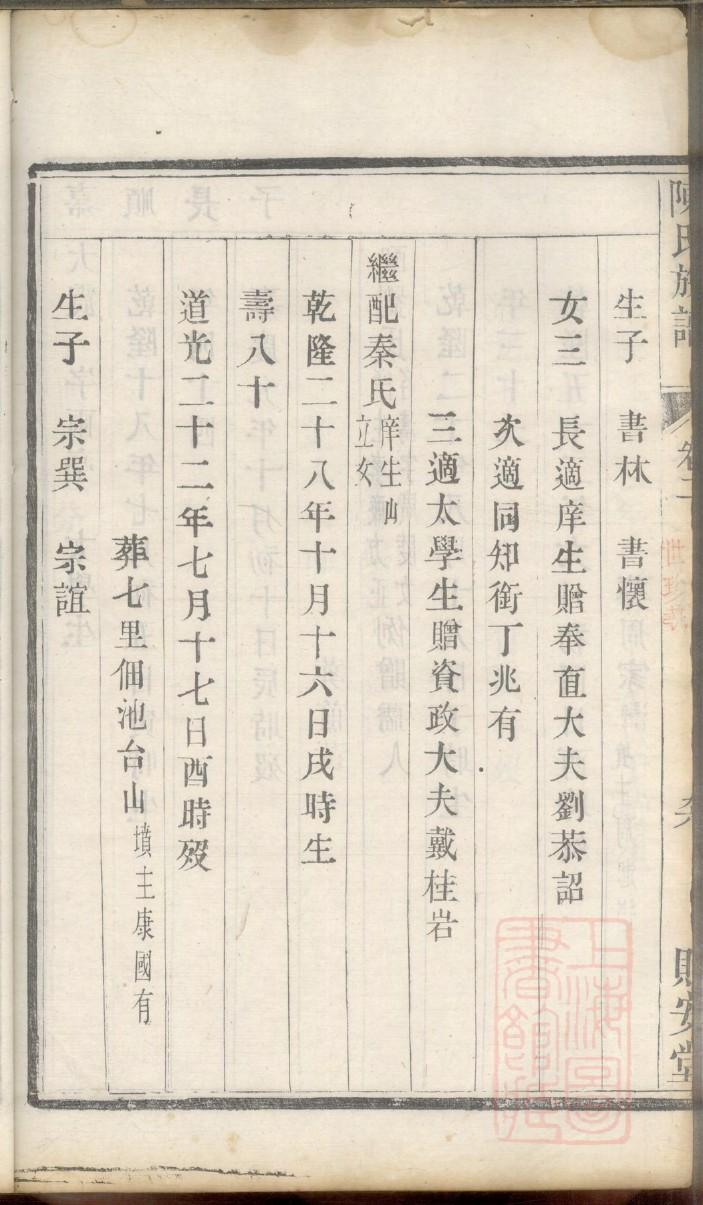 陳氏族譜
卷二
世系
生子 書林 書懷
女三 長適庠生贈奉直大夫劉恭詔
次適同知銜丁兆有
三適太學生贈資政大夫戴桂岩
繼配秦氏庠生山立女
乾隆二十八年十月十六日戌時生
壽八十
道光二十二年七月十七日酉時歿
葬七里佃池台山墳主康國有
生子 宗巽 宗誼
上海圖書館藏